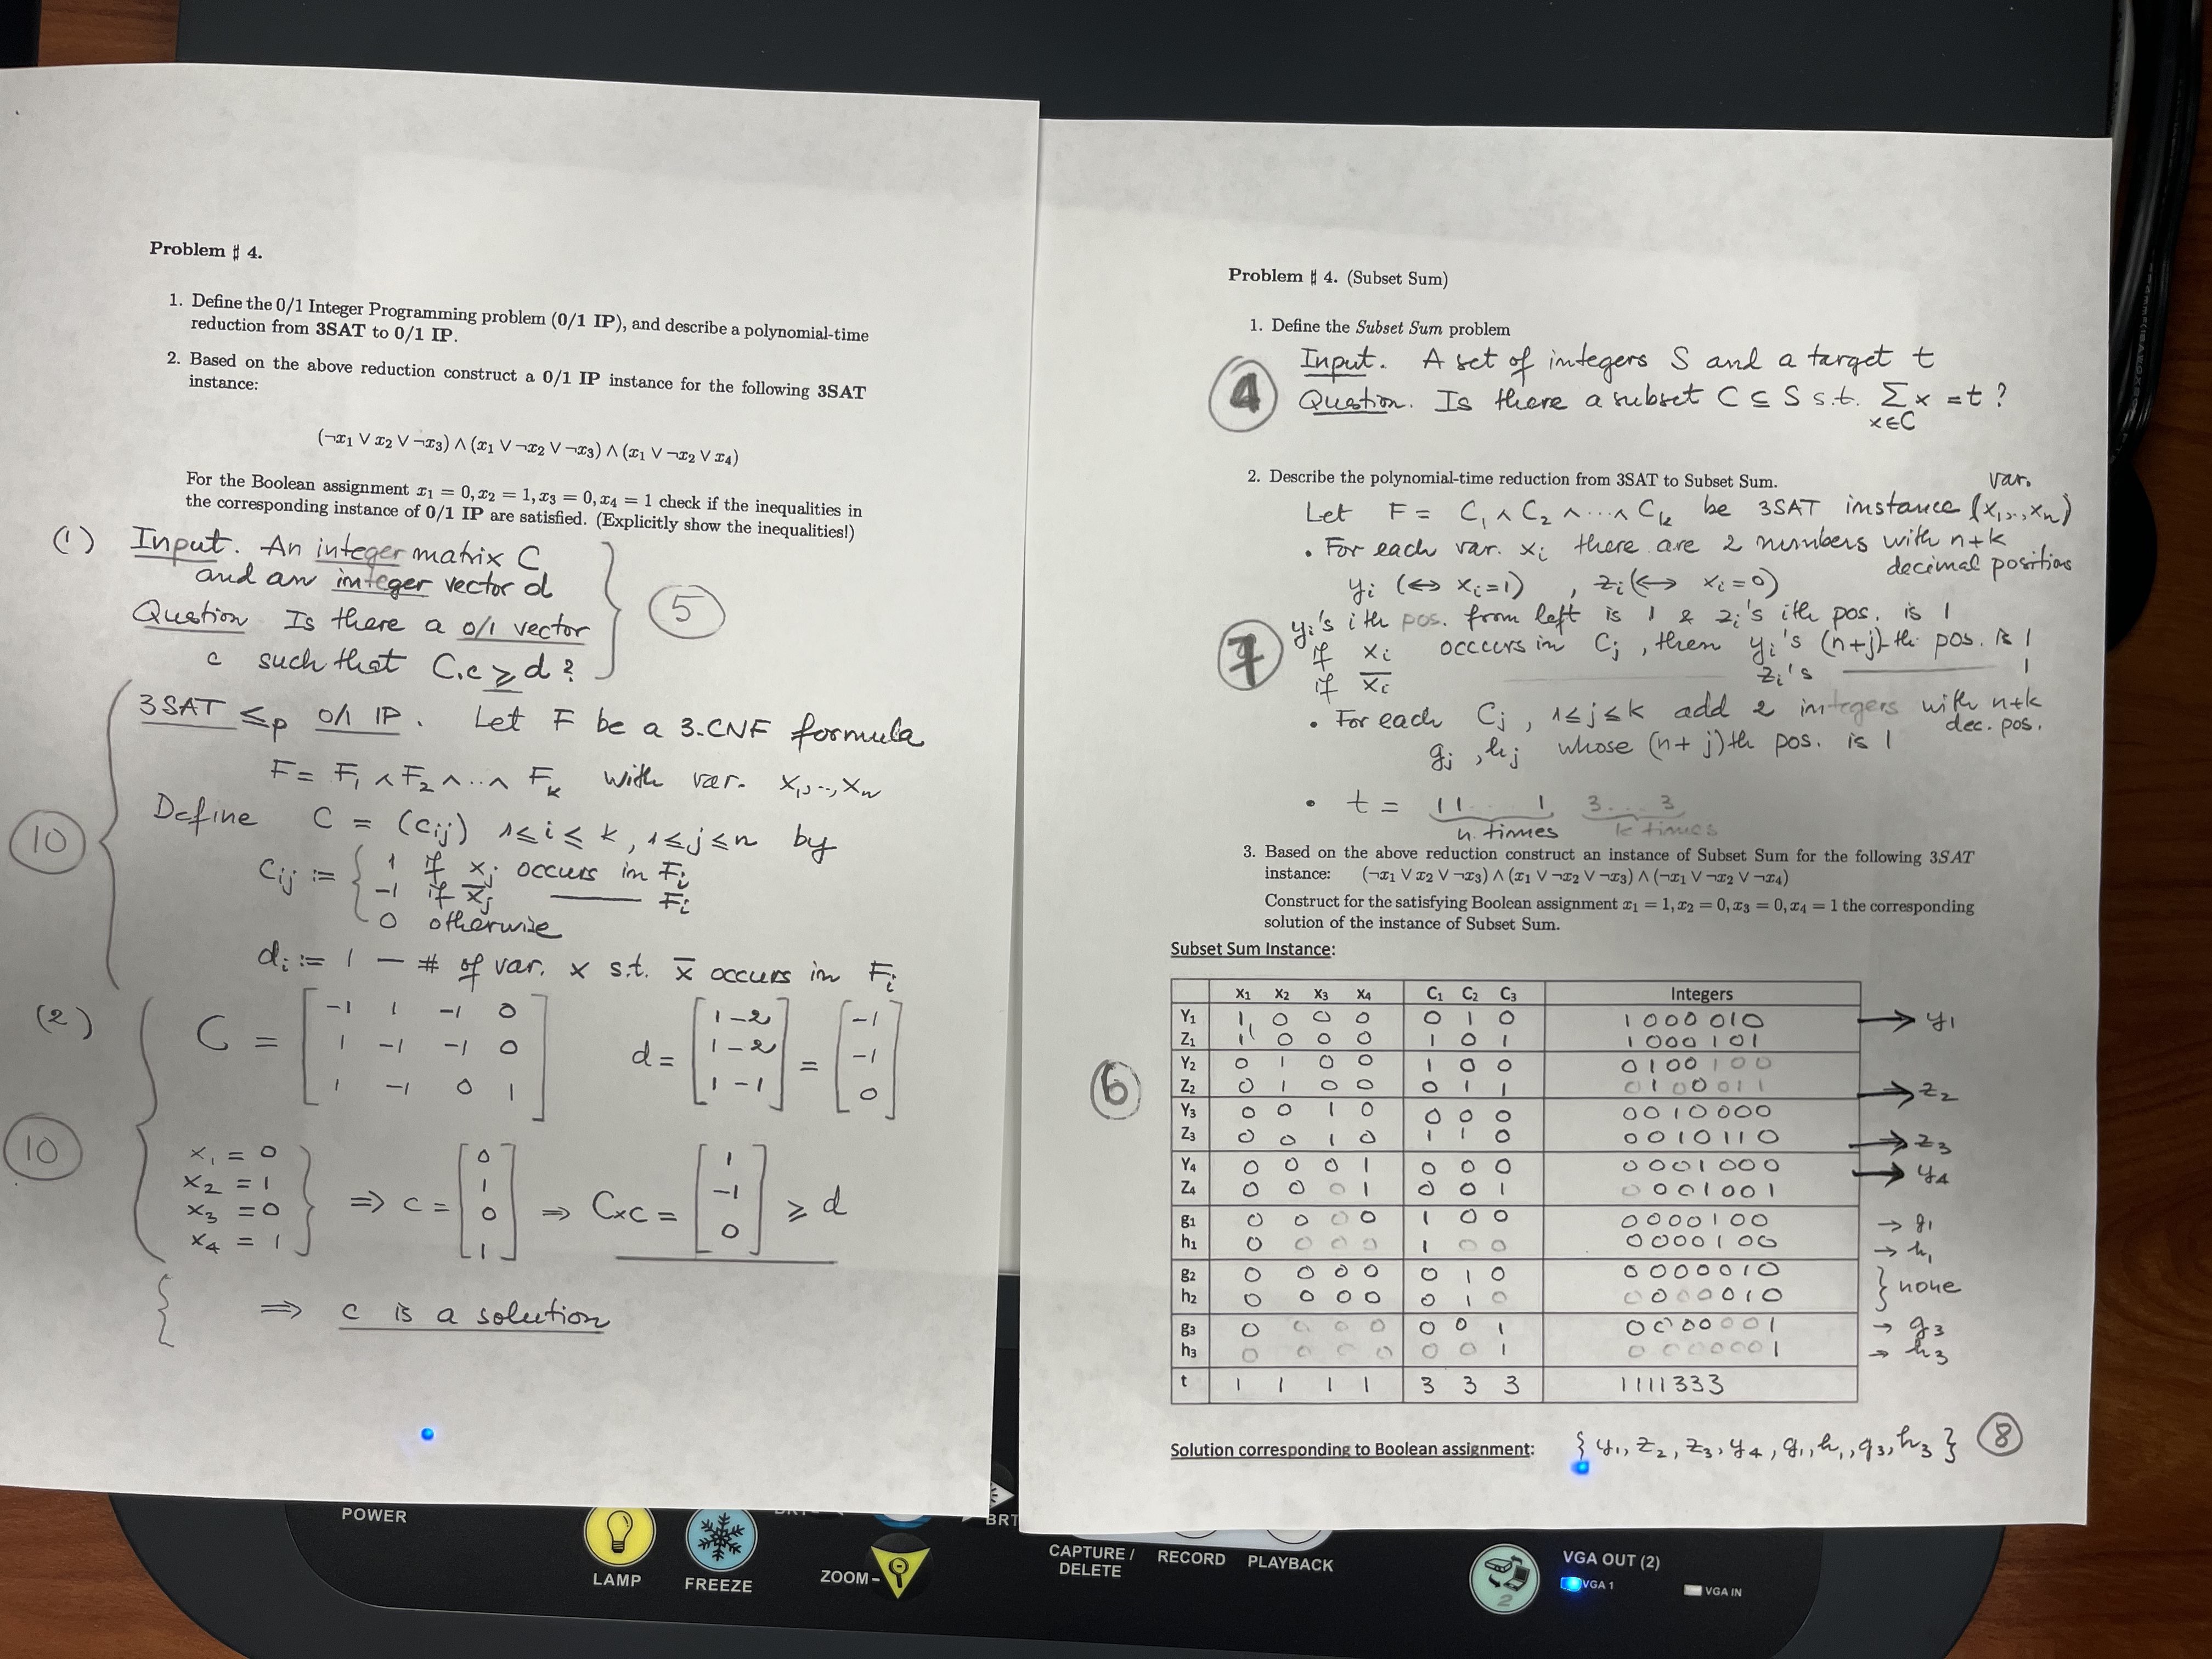 Problem ♯ 4.
1. Define the 0/1 Integer Programming problem (0/1 IP), and describe a polynomial-time
reduction from 3SAT to 0/1 IP.
2. Based on the above reduction construct a 0/1 IP instance for the following 3SAT
instance:
(¬x₁ ∨ x₂ ∨ ¬x₃) ∧ (x₁ ∨ ¬x₂ ∨ ¬x₃) ∧ (x₁ ∨ ¬x₂ ∨ x₄)
For the Boolean assignment x₁ = 0, x₂ = 1, x₃ = 0, x₄ = 1 check if the inequalities in
the corresponding instance of 0/1 IP are satisfied. (Explicitly show the inequalities!)
(1) Input. An integer matrix C
and an integer vector d
Question Is there a 0/1 vector
c such that C.c ≥ d ?
5
3SAT ≤p 0/1 IP. Let F be a 3-CNF formula
F = F₁ ∧ F₂ ∧ .. ∧ Fk with var. x₁, .., xn
Define C = (cij) 1≤i≤k, 1≤j≤n by
10
cij := { 1 if xj occurs in Fi
-1 if x̄j ——— Fi
0 otherwise
di := 1 - # of var. x s.t. x̄ occurs in Fi
(2) C = [ -1 1 -1 0
1 -1 -1 0
1 -1 0 1 ]
d = [ 1-2
1-2
1-1 ] = [ -1
-1
0 ]
10
x₁ = 0
x₂ = 1
x₃ = 0
x₄ = 1
⇒ c = [ 0
1
0
1 ] ⇒ C×c = [ 1
-1
0 ] ≥ d
⇒ c is a solution
Problem ♯ 4. (Subset Sum)
1. Define the Subset Sum problem
Input. A set of integers S and a target t
4
Question. Is there a subset C ⊆ S s.t. Σ x = t ?
x∈C
2. Describe the polynomial-time reduction from 3SAT to Subset Sum.
var.
Let F = C₁ ∧ C₂ ∧ ... ∧ Ck be 3SAT instance (x₁, .., xn)
• For each var. xi there are 2 numbers with n+k
decimal positions
yi (↔ xi=1) , zi (↔ xi=0)
yi's ith pos. from left is 1 & zi's ith pos. is 1
7
if xi occcurs in Cj, then yi's (n+j)-th pos. is 1
if x̄i ——— zi's ——— 1
• For each Cj, 1≤j≤k add 2 integers with n+k
dec. pos.
gj, hj whose (n+j)th pos. is 1
• t = 11.. 1 3...3
n times k times
3. Based on the above reduction construct an instance of Subset Sum for the following 3SAT
instance: (¬x₁ ∨ x₂ ∨ ¬x₃) ∧ (x₁ ∨ ¬x₂ ∨ ¬x₃) ∧ (¬x₁ ∨ ¬x₂ ∨ ¬x₄)
Construct for the satisfying Boolean assignment x₁ = 1, x₂ = 0, x₃ = 0, x₄ = 1 the corresponding
solution of the instance of Subset Sum.
Subset Sum Instance:
X₁ X₂ X₃ X₄ C₁ C₂ C₃ Integers
Y₁ 1 0 0 0 0 1 0 1000010 → y₁
Z₁ 1 0 0 0 1 0 1 1000101
Y₂ 0 1 0 0 1 0 0 0100100
Z₂ 0 1 0 0 0 1 1 0100011 → z₂
6
Y₃ 0 0 1 0 0 0 0 0010000
Z₃ 0 0 1 0 1 1 0 0010110 → z₃
Y₄ 0 0 0 1 0 0 0 0001000 → y₄
Z₄ 0 0 0 1 0 0 1 0001001
g₁ 0 0 0 0 1 0 0 0000100 → g₁
h₁ 0 0 0 0 1 0 0 0000100 → h₁
g₂ 0 0 0 0 0 1 0 0000010
h₂ 0 0 0 0 0 1 0 0000010 } none
g₃ 0 0 0 0 0 0 1 0000001 → g₃
h₃ 0 0 0 0 0 0 1 0000001 → h₃
t 1 1 1 1 3 3 3 1111333
Solution corresponding to Boolean assignment: { y₁, z₂, z₃, y₄, g₁, h₁, g₃, h₃ } 8
POWER
LAMP
FREEZE
ZOOM-
BRT
CAPTURE / DELETE
RECORD
PLAYBACK
2
VGA OUT (2)
VGA 1
VGA IN